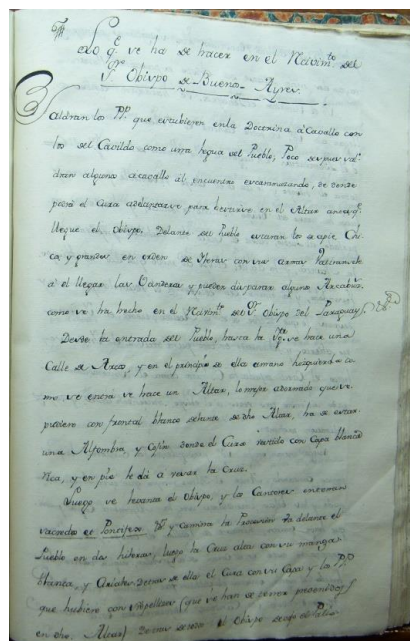 Lo q.e se ha de hacer en el Recivim.to del
S.or Obispo de Buenos Ayres.
Saldran los PP. que estubieren en la Doctrina à Cavallo con
los del Cavildo como una legua del Pueblo, Poco despues sal-
dran algunos à cavallo al encuentro escaramuzando, de donde
podrá el Cura adelantarse para hetirse en el Altar antes q.e
llegue el Obispo. Delante del Pueblo estaran los à pie, Chi-
cos y grandes en orden de hileras con sus armas
à el llegar las Vanderas, y pueden disparar algunos Arcabuzes
como se ha hecho en el Recivim.to del S.r Obispo del Paraguay
Desde la entrada del Pueblo, hasta la Yg.a se hace una
Calle de Arcos, y en el principio de ella à mano hizquierda co-
mo se entra se hace un Altar, lo mejor adornado que se
pudiere con frontal blanco delante de dho Altar, ha de estar
una Alfombra, y Cojin donde el Cura vestido con Capa blanca
rica, y en pie le dà à vesar la Cruz.
Luego se levanta el Obispo, y los Cantores entonan
sacerdos et Pontifex. y camina la Procesion delante el
Pueblo en dos hileras, luego la Cruz alta con su manga
blanca, y detras de ella el Cura con su Capa y los PP.
que hubiere con sobrepellizes (que se han de tener prevenidos
en dho. Altar) detras el Obispo debajo de Palio